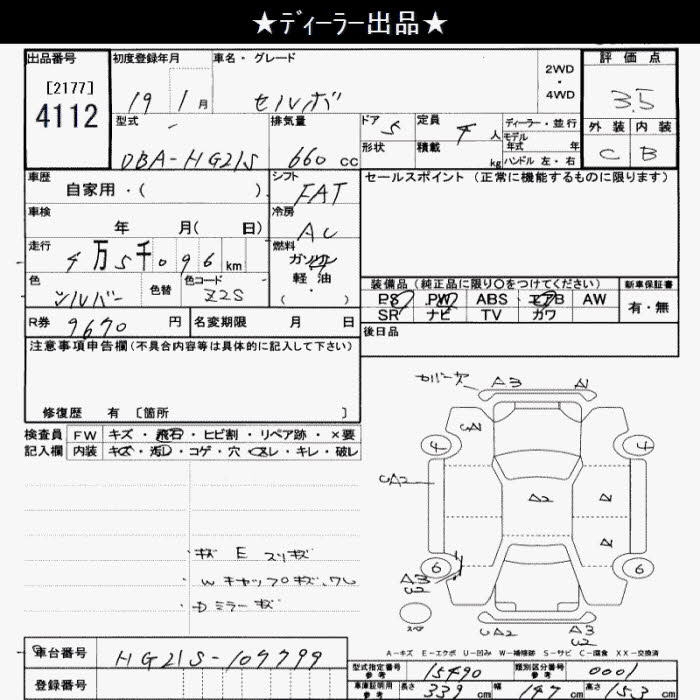 ★ディーラー出品★
出品番号 初度登録年月 車名・グレード 2WD・4WD 評価点
[2177]
4112 19 1月 セルボ 3.5
型式 排気量 ドア 5 定員 4人 ディーラー・並行 外装 内装
DBA-HG21S 660cc 形状 積載 kg モデル年式 年 ハンドル 左・右 C B
車歴 シフト セールスポイント(正常に機能するものに限ります)
自家用・( ) FAT
車検 冷房
年 月( 日) AC
走行 燃料
4万5千096km ガソリン
軽油
( ・ )
色 色替 色コード 装備品(純正品に限り○をつけてください) 新車保証書
シルバー Z2S PS PW ABS エアB AW 有・無
R券 9670円 名変期限 月 日 SR ナビ TV カワ
後日品
注意事項申告欄(不具合内容等は具体的に記入して下さい)
修復歴 有 〔箇所 〕
検査員 FW キズ・飛石・ヒビ割・リペア跡・×要
記入欄 内装 キズ・汚レ・コゲ・穴・スレ・キレ・破レ
カバー欠 A3 A1
A2
4 4
UA2
A2
・キズ E スリキズ
・Wキャップキズ、ワレ
・Dミラーキズ
6 6
A3
スペア
UA2 A3
A-キズ E-エクボ U-凹み W-補修跡 S-サビ C-腐食 XX-交換済
車台番号 HG21S-109799
登録番号
型式指定番号参考 15490 類別区分番号参考 0001
車庫証明用参考 長さ 339cm 幅 147cm 高さ 153cm